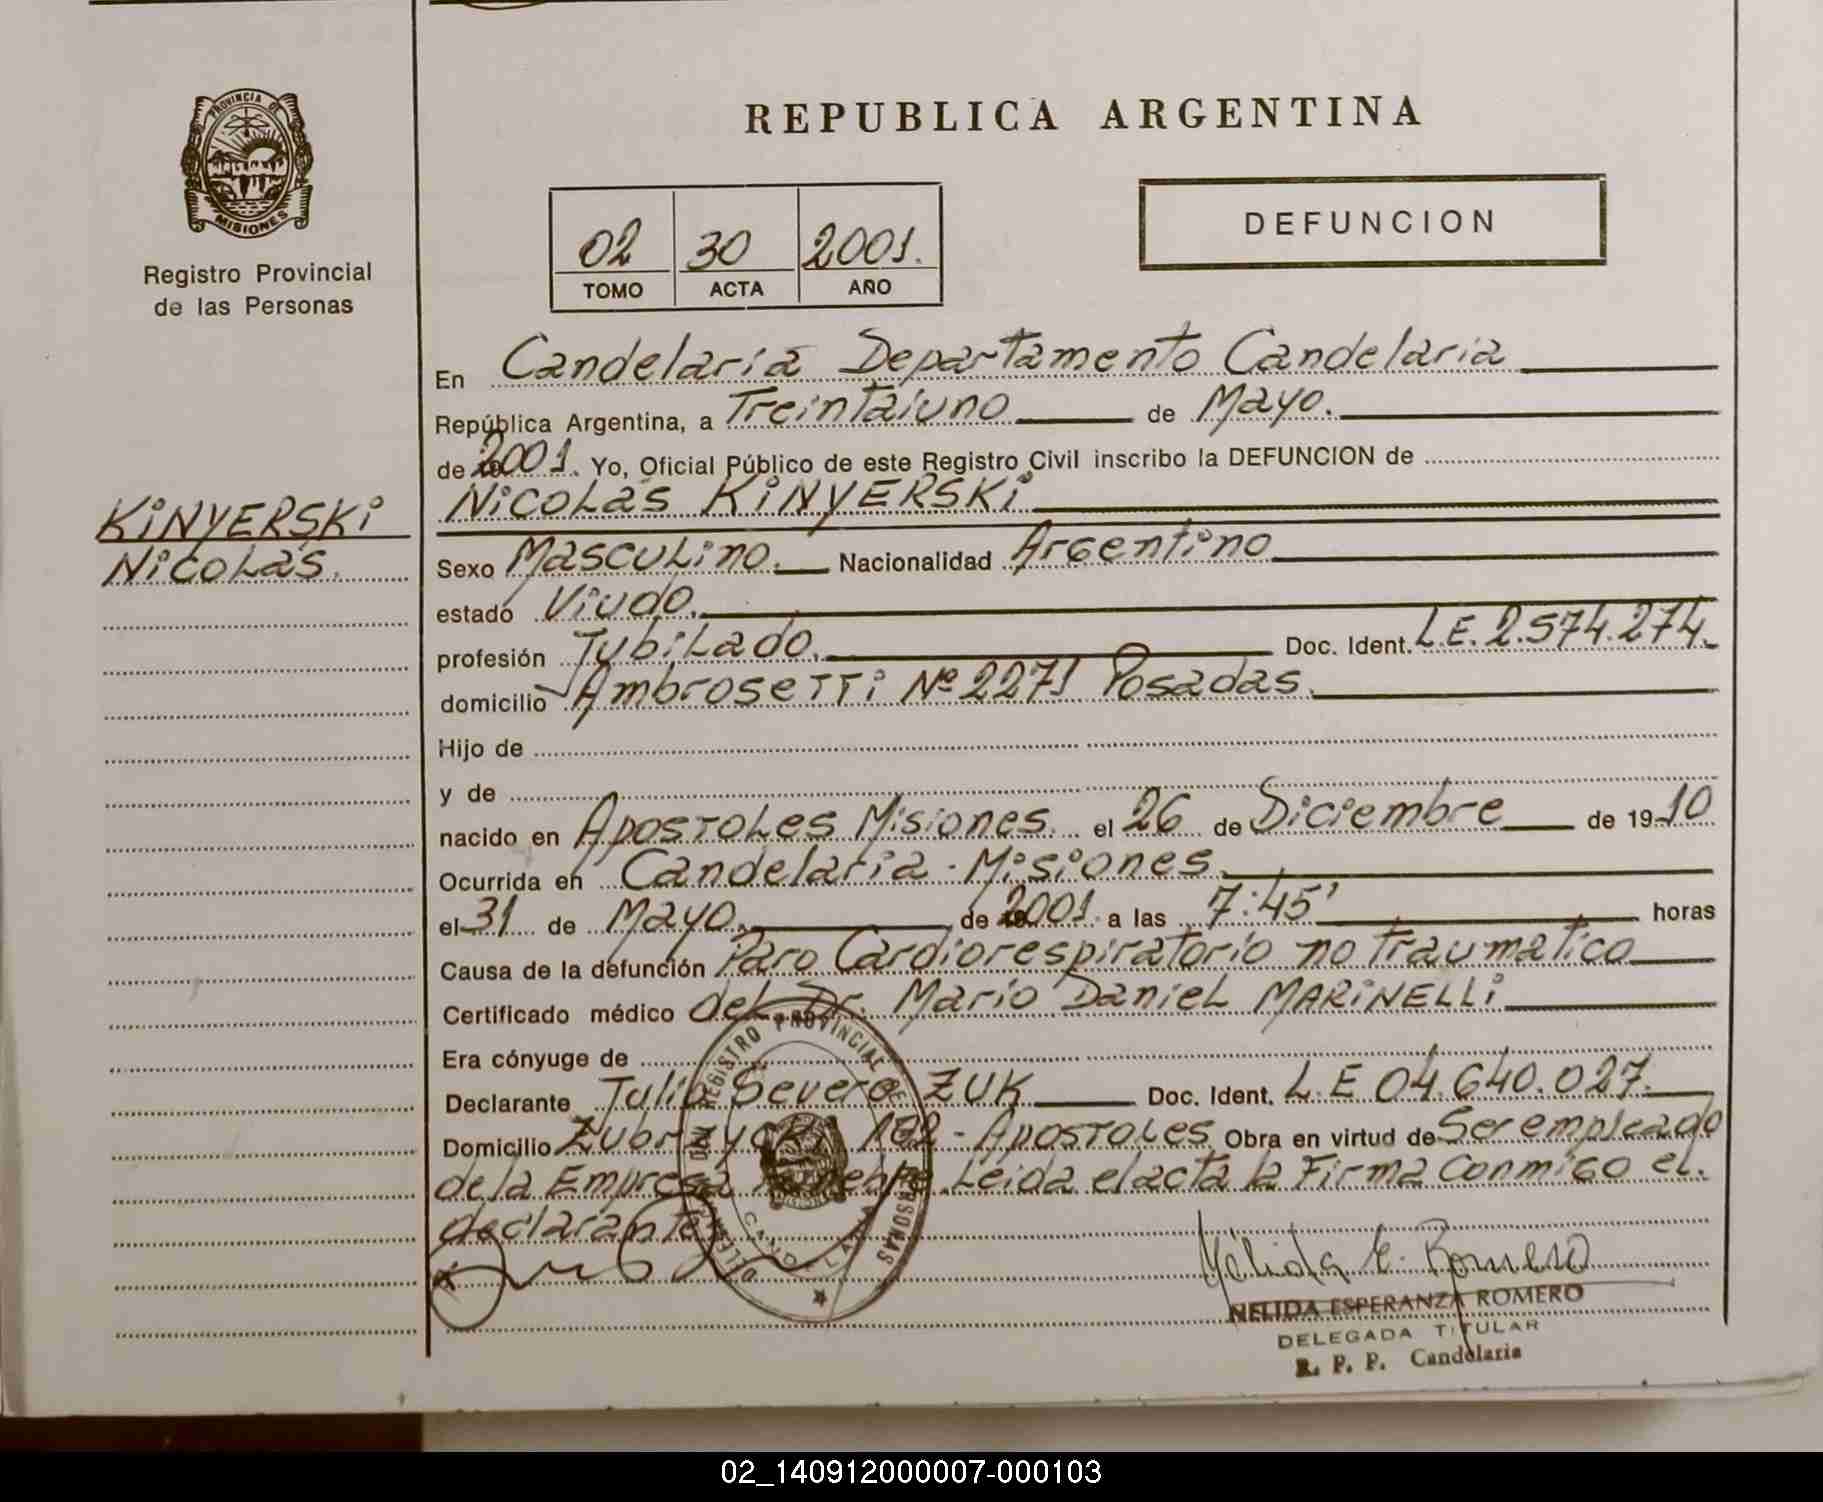 PROVINCIA DE
MISIONES
Registro Provincial
de las Personas
REPUBLICA ARGENTINA
02 30 2001.
TOMO ACTA AÑO
DEFUNCION
En Candelaria Departamento Candelaria
República Argentina, a Treintaiuno de Mayo.
de 2001. Yo, Oficial Público de este Registro Civil inscribo la DEFUNCION de
KINYERSKI
NICOLAS.
NICOLAS KINYERSKI
Sexo Masculino. Nacionalidad Argentino
estado Viudo.
profesión Jubilado. Doc. Ident. L.E. 2.574.274.
domicilio Ambrosetti Nº 2271 Posadas.
Hijo de
y de
nacido en Apostoles Misiones. el 26 de Diciembre de 1910
Ocurrida en Candelaria - Misiones.
el 31 de Mayo. de 2001. a las 7:45' horas
Causa de la defunción Paro Cardiorespiratorio no traumatico
Certificado médico del Dr. Mario Daniel MARINELLI
Era cónyuge de
Declarante Julio Severo ZUK Doc. Ident. L.E 04.640.027.
Domicilio - Apostoles Obra en virtud de Ser empleado
de la Empresa Funebre. Leida el acta la Firma Conmigo el.
declarante
REGISTRO PROVINCIAL DE LAS PERSONAS
CANDELARIA
Nélida E. Romero
NELIDA ESPERANZA ROMERO
DELEGADA TITULAR
R. P. P. Candelaria
02_140912000007-000103